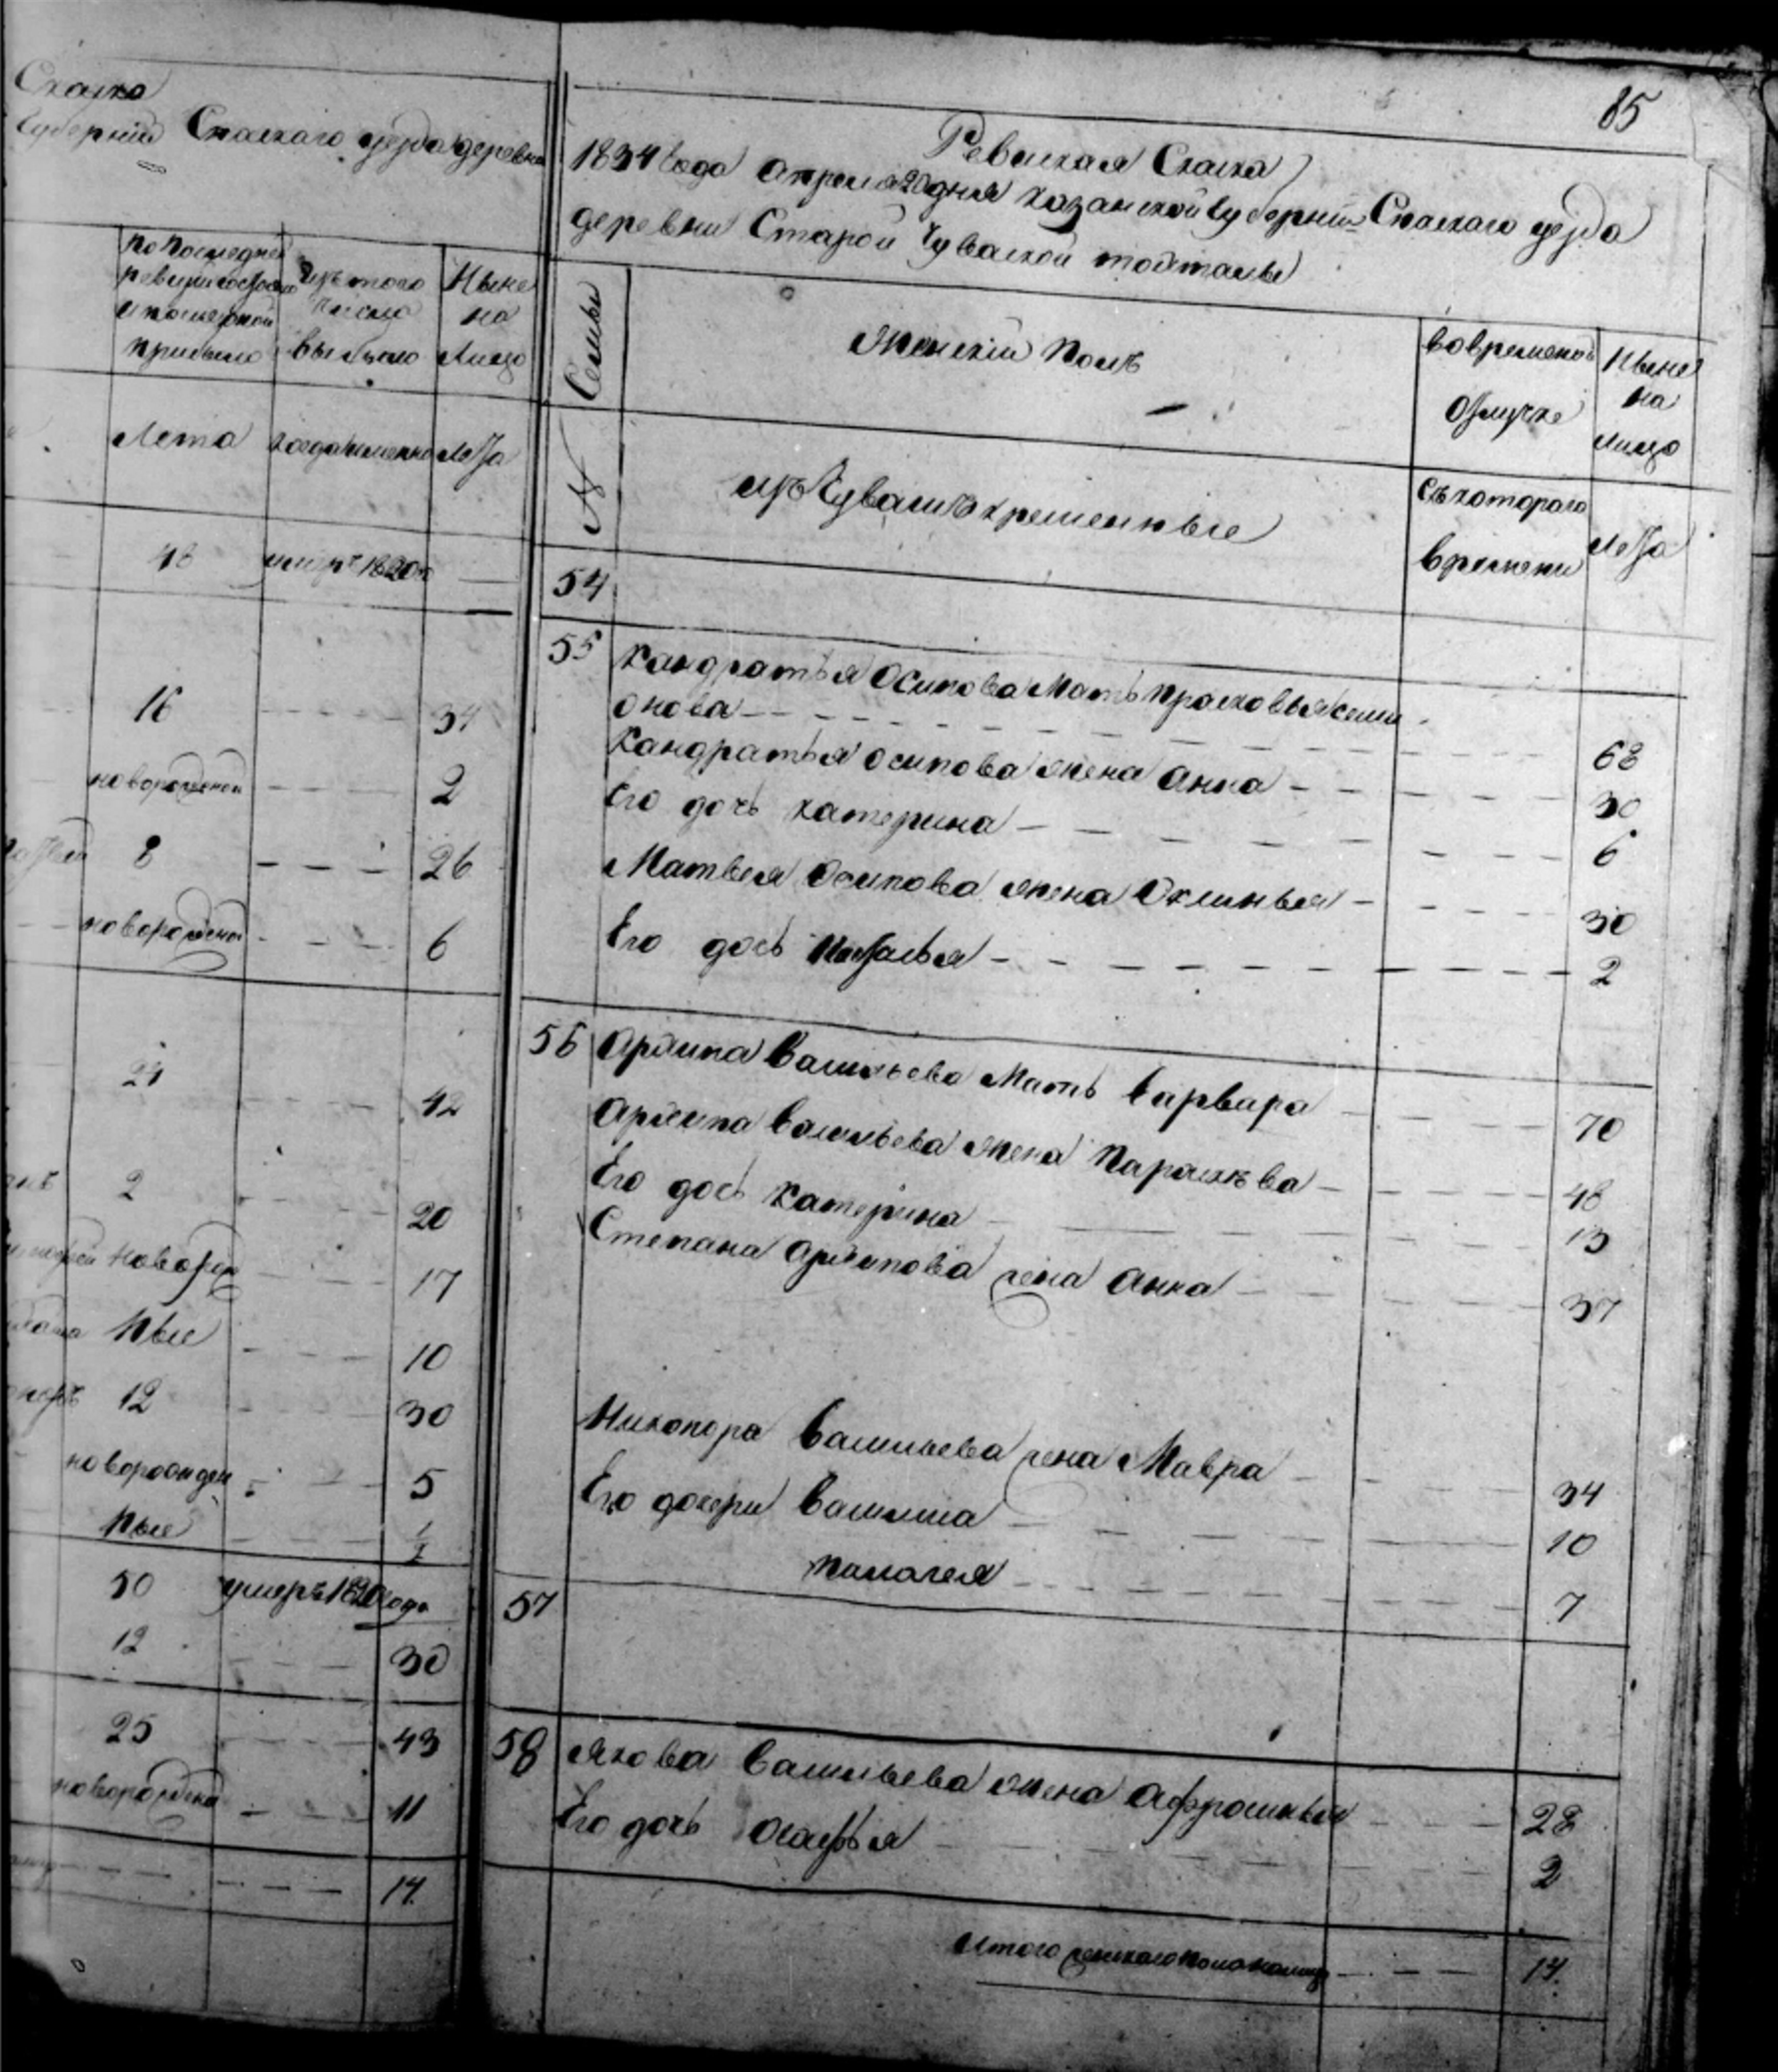 Скаска
Губернии Спаскаго уезда деревни
по последней
ревизии состояло
и после оной
прибыло
Изъ того
числа
выбыло
Ныне
на
Лицо
Лета
когда именно
Лета
48 умиръ 1820го
16 34
новорожденой 2
8 26
новорожденой 6
24 42
2 20
Новорож 17
ные 10
12 30
новорожден 5
ные 1/2
50 умеръ 1820 года
12 30
25 43
новорождена 11
14.
85
Ревиская Скаска
1834 Года апреля 20 дня Казанской Губернии Спаскаго уезда
деревни Старой Чуваской тойталы
Семьи
№
Женский Полъ
изъ Чувашъ крещенные
вовременой
Отлучке
Съ котораго
времени
Ныне
на
лицо
Лета
54
55 Кандратья Осипова Мать Прасковья семи
онова 68
Кандратья осипова жена Анна 30
Его дочь катерина 6
Матвея Осипова жена Оксинья 30
Его дочь Наталья 2
56 Архипа Васильева Мать Варвара 70
Архипа Васильева жена Парасковва 48
Его дочь Катерина 13
Степана Архипова жена Анна 37
Никонора Васильева жена Мавра 34
Его дочери Василиса 10
Палагея 7
57
58 Якова Васильева жена Афросинья 28
Его дочь Агафья 2
Итого женскаго пола налицо 14.